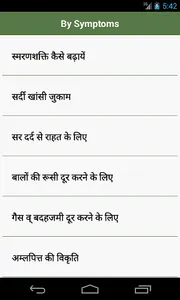 5:42
By Symptoms
स्मरणशक्ति कैसे बढ़ायें
सर्दी खांसी जुकाम
सर दर्द से राहत के लिए
बालों की रूसी दूर करने के लिए
गैस व् बदहजमी दूर करने के लिए
अम्लपित्त की विकृति